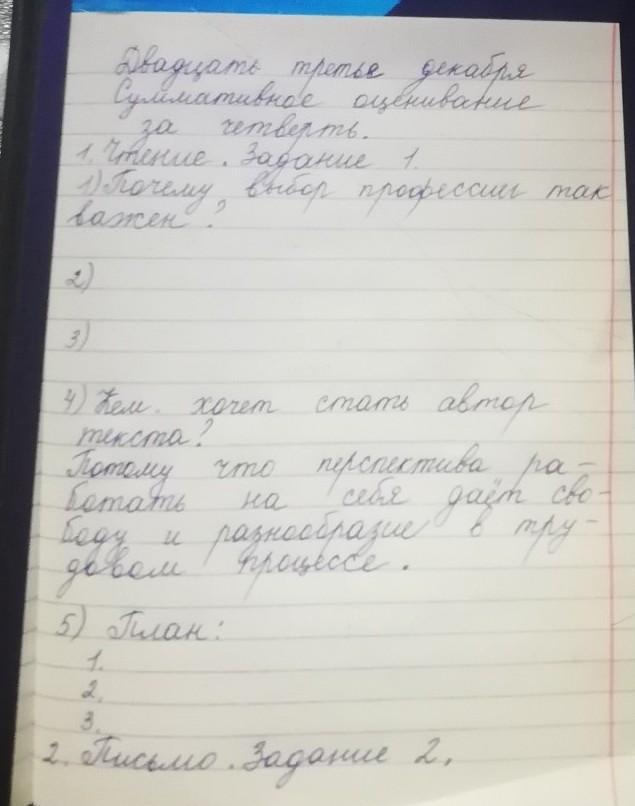 Двадцать третье декабря
Суммативное оценивание
за четверть.
1. Чтение. Задание 1.
1) Почему выбор профессии так
важен?
2)
3)
4) Кем. хочет стать автор
текста?
Потому что перспектива ра-
ботать на себя даёт сво-
боду и разнообразие в тру-
довом процессе.
5) План:
1.
2.
3.
2. Письмо. Задание 2.